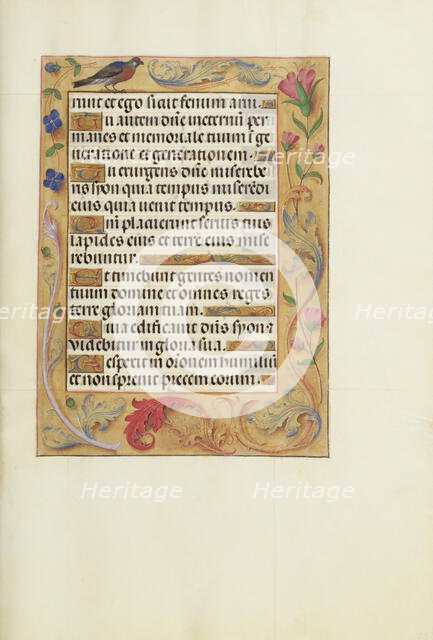 runt et ego sicut fenum arui.
Tu autem dñe ineternū per
manes et memoriale tuum ī ge
neratione et generationem.
Tu exurgens dñe misereberis
syon quia tempus miserēdi
eius quia uenit tempus.
Qm̄ placuerunt seruis tuis
lapides eius et terre eius mise
rebuntur.
Et timebunt gentes nomen
tuum domine et omnes reges
terre gloriam tuam.
Quia edificauit dñs syon
videbitur in gloria sua.
Respexit in oroēm humiliū
et non spreuit precem eorum.
Heritage
Heritage
Heritage
Heritage
Heritage
Heritage